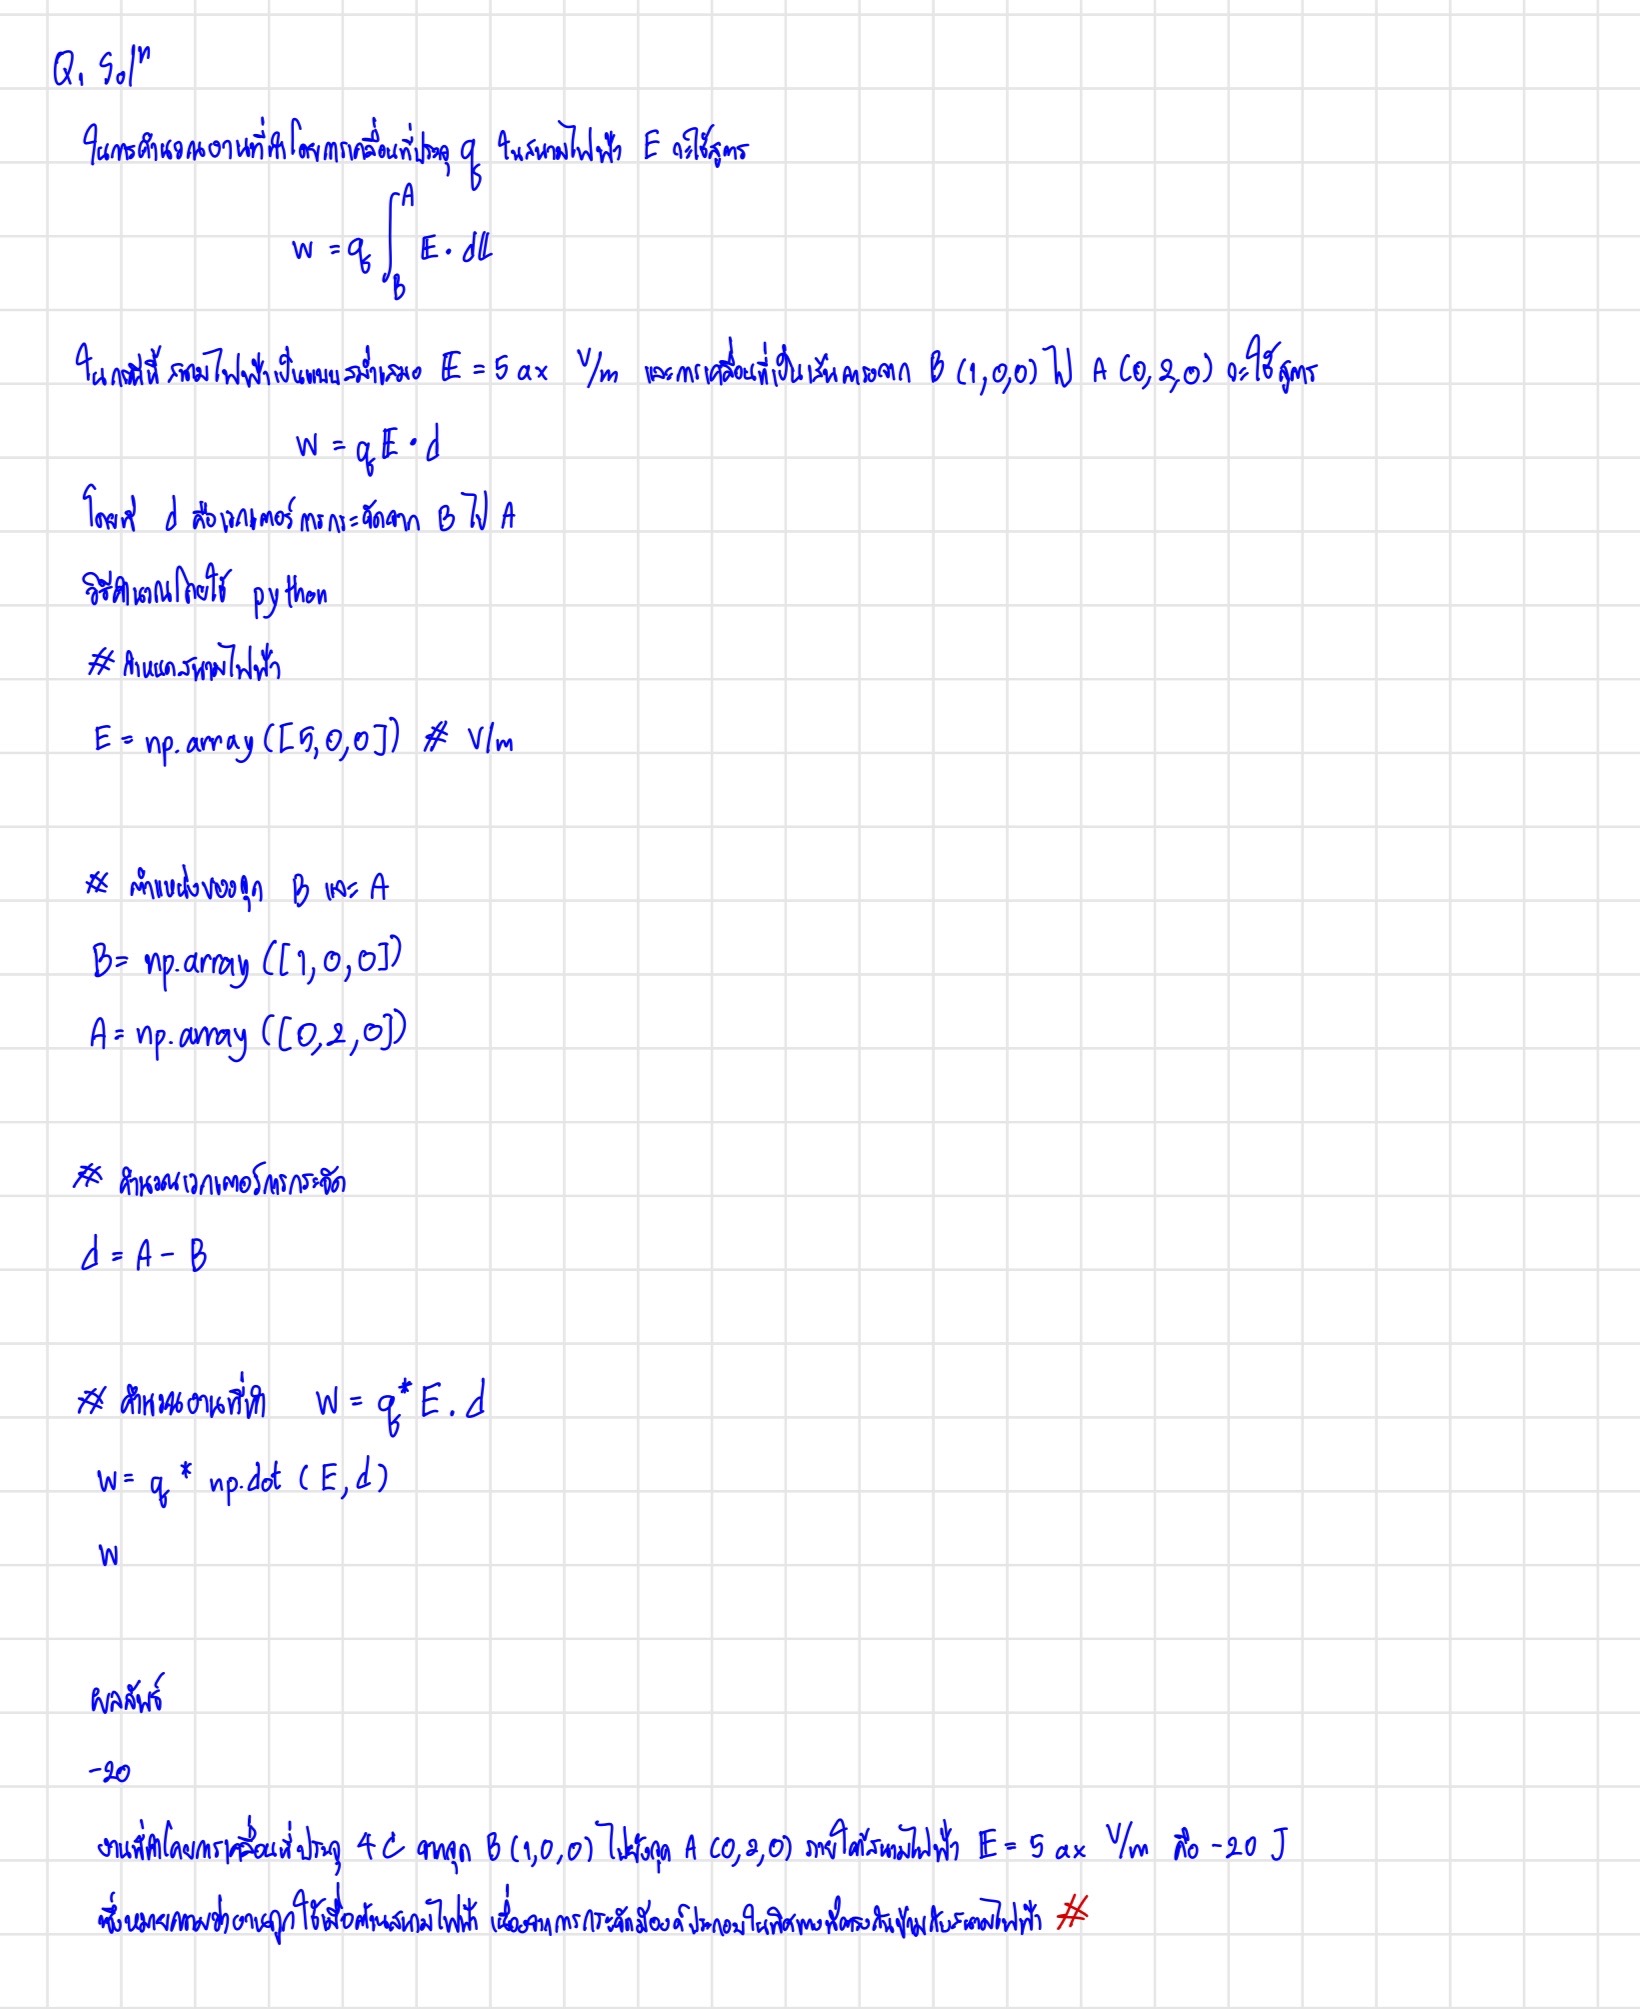 Q. Solⁿ
ในการคำนวณงานที่ทำโดยการเคลื่อนที่ประจุ q ในสนามไฟฟ้า E จะใช้สูตร
w = q ∫_B^A E · dL
ในกรณีนี้ สนามไฟฟ้าเป็นแบบสม่ำเสมอ E = 5 ax V/m และการเคลื่อนที่เป็นเส้นตรงจาก B (1,0,0) ไป A (0,2,0) จะใช้สูตร
W = qE · d
โดยที่ d คือเวกเตอร์การกระจัดจาก B ไป A
วิธีคำนวณโดยใช้ python
# กำหนดสนามไฟฟ้า
E = np.array([5,0,0]) # V/m
# ตำแหน่งของจุด B และ A
B = np.array([1,0,0])
A = np.array([0,2,0])
# คำนวณเวกเตอร์การกระจัด
d = A - B
# คำนวณงานที่ทำ W = q* E . d
W = q * np.dot (E,d)
W
ผลลัพธ์
-20
งานที่ทำโดยการเคลื่อนที่ประจุ 4 C จากจุด B (1,0,0) ไปยังจุด A (0,2,0) ภายใต้สนามไฟฟ้า E = 5 ax V/m คือ -20 J
ซึ่งหมายความว่างานถูกใช้เพื่อต้านสนามไฟฟ้า เนื่องจากการกระจัดมีองค์ประกอบในทิศทางที่ตรงกันข้ามกับสนามไฟฟ้า #